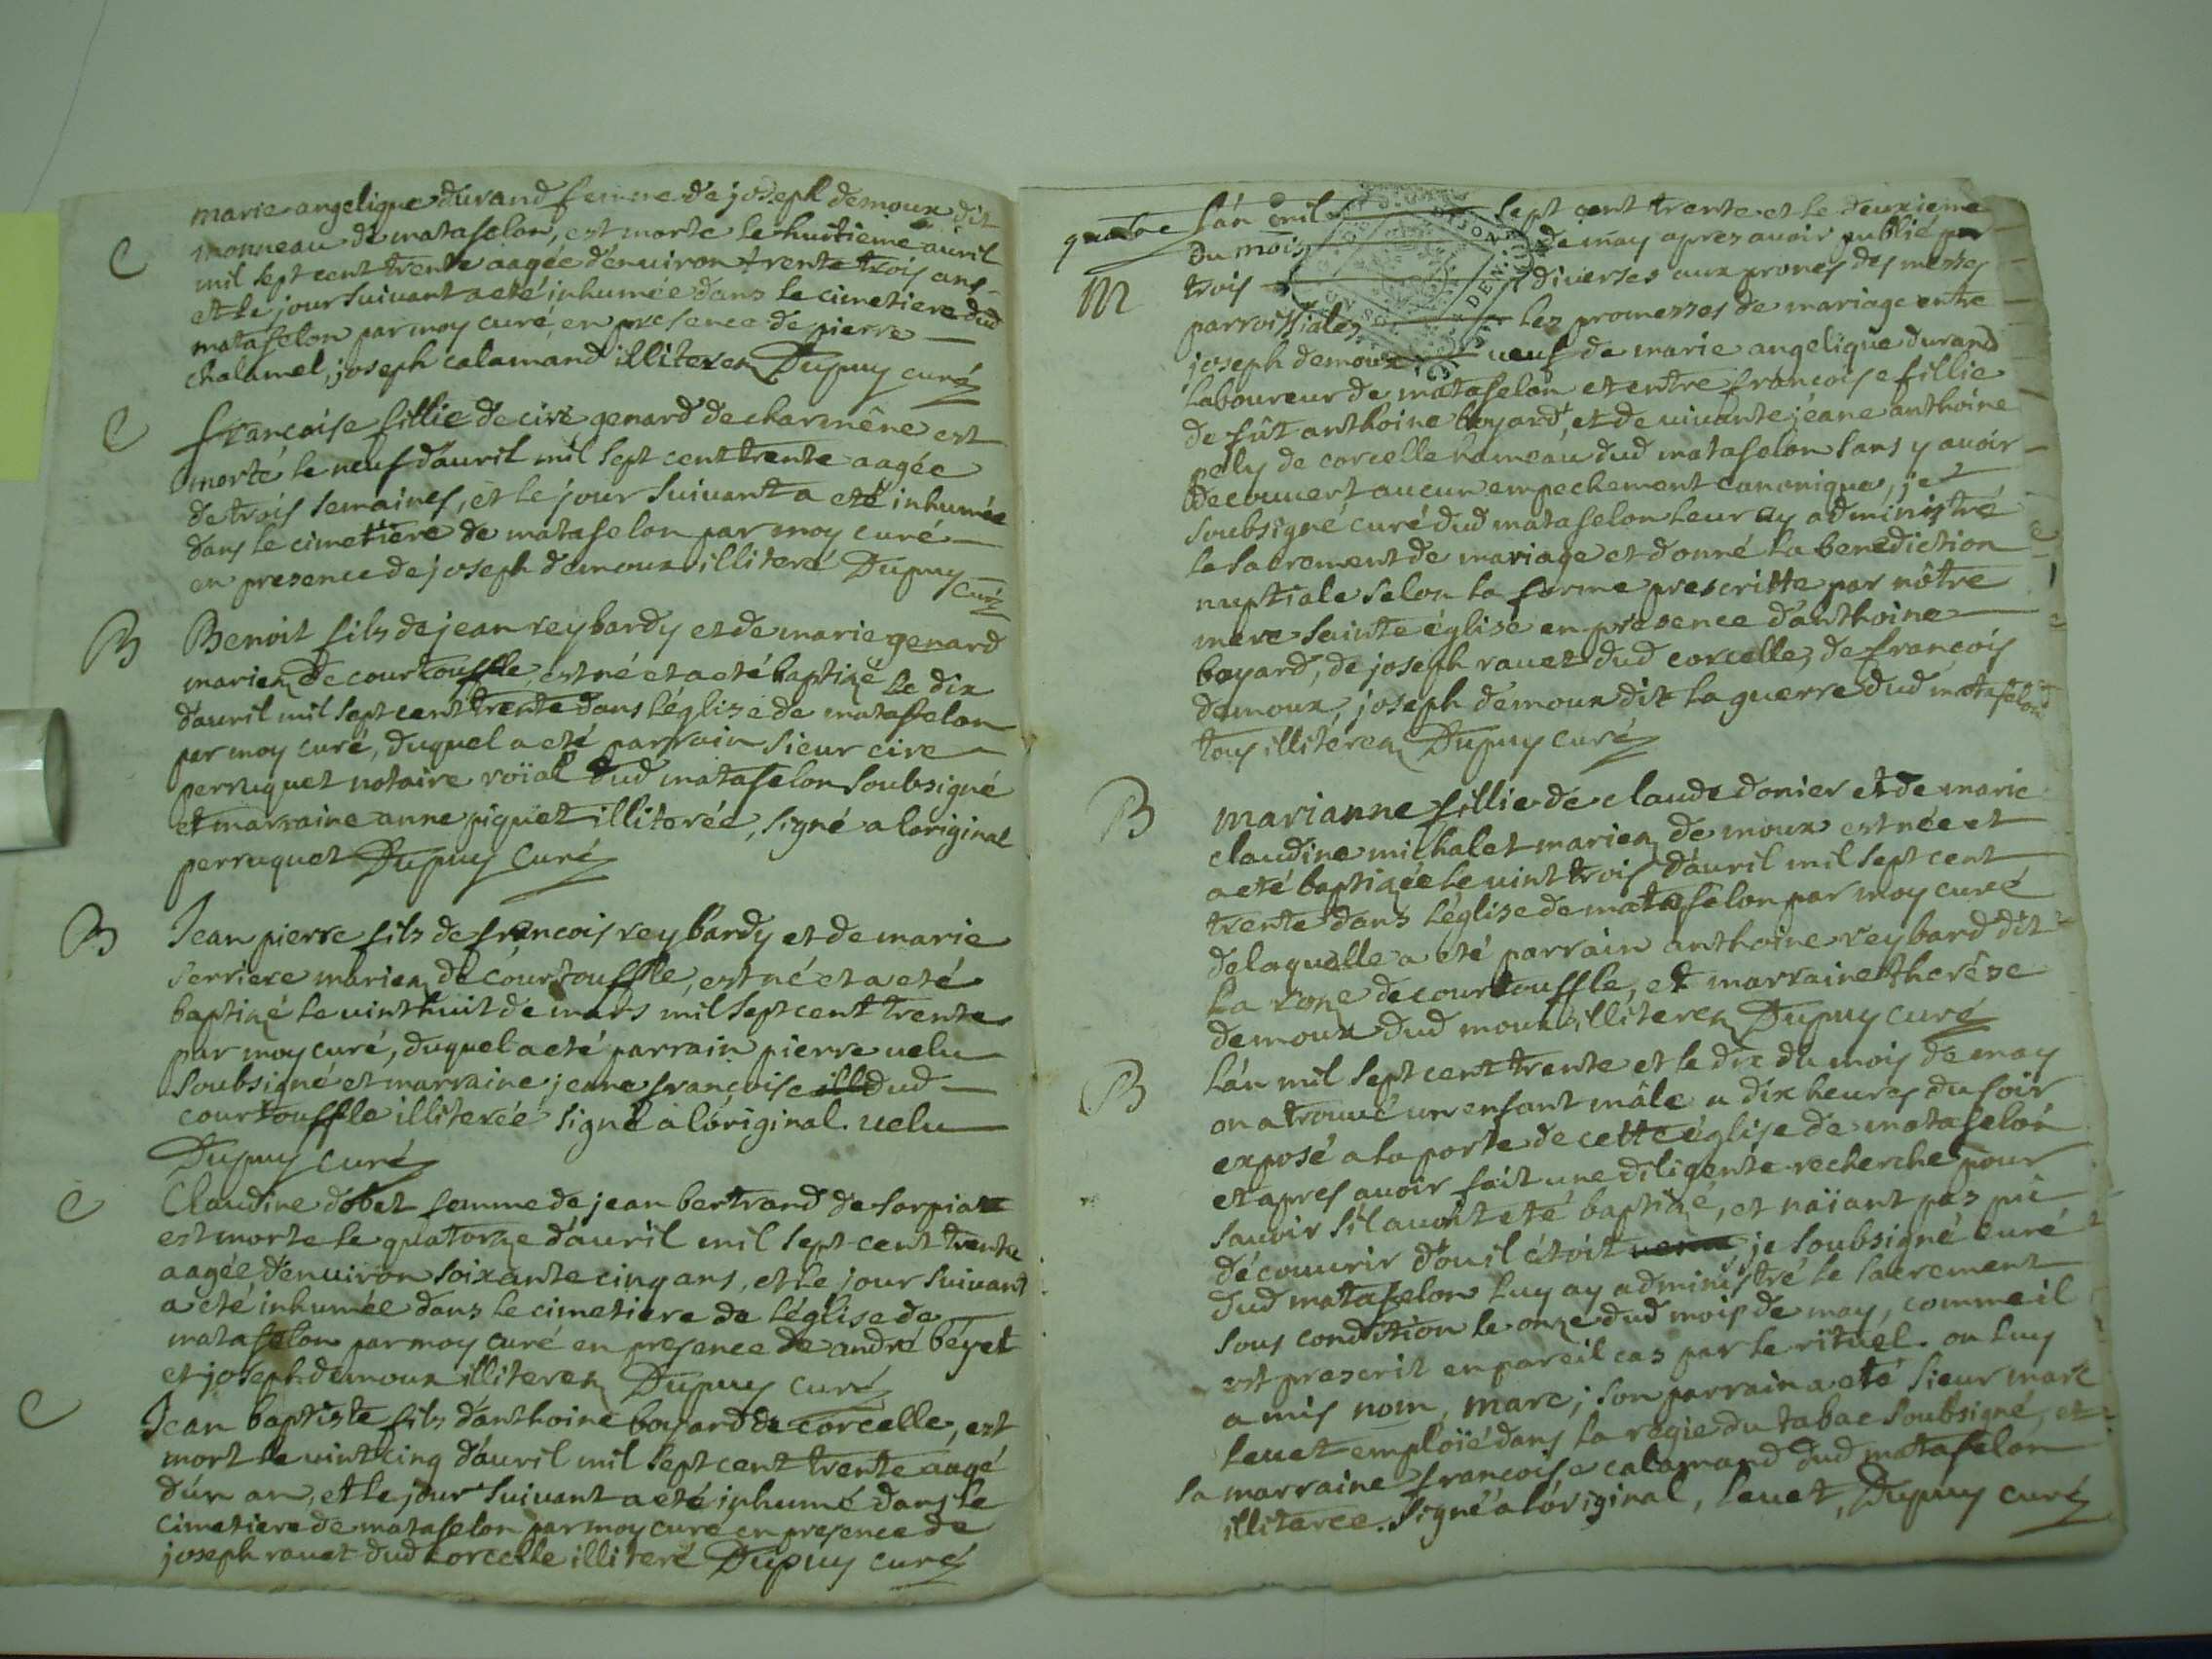 marie angelique durand femme de joseph demoux dit
C
monneau de matafelon, est morte le huitieme auril
mil sept cent trente aagée d'enuiron trente trois ans
et le jour suiuant a eté inhumée dans le cimetiere dud
matafelon par moy curé en presence de pierre
chalamel, joseph calamand illiterez Dupuy curé
C
francoise fillie de cire genard de charmêne est
morte le neuf d'auril mil sept cent trente aagée
de trois semaines, et le jour suiuant a eté inhumée
dans le cimetiere de matafelon par moy curé
en presence de joseph demoux illiteré Dupuy
curé
B
Benoit fils de jean reybardy et de marie genard
mariez de courtouffle, est né et a eté baptizé le dix
d'auril mil sept cent trente dans l'église de matafelon
par moy curé, duquel a eté parrain sieur cire
perruquet notaire roïal dud matafelon soubsigné
et marraine anne piquet illiterée, signé a loriginal
perruquet Dupuy curé
B
Jean pierre fils de francois reybardy et de marie
serriere mariez de courtouffle, est né et a eté
baptizé le uint huit de mars mil sept cent trente
par moy curé, duquel a eté parrain pierre uelu
soubsigné et marraine jeane françoise ill dud
courtouffle illiterée signé a l'original. uelu
Dupuy curé
C
Claudine dobet femme de jean bertrand de sorpiat
est morte le quatorze d'auril mil sept cent trente
aagée d'enuiron soixante cinq ans, et le jour suiuant
a eté inhumée dans le cimetiere de l'église de
matafelon par moy curé en presence de andré béyet
et joseph demoux illiterez Dupuy curé
C
Jean baptiste fils d'anthoine boyard de corcelle, est
mort le uint cinq d'auril mil sept cent trente aagé
d'un an, et le jour suiuant a eté inhumé dans le
cimetiere de matafelon par moy curé en presence de
joseph rauet dud corcelle illiteré Dupuy curé
l'an mil sept cent trente et le deuxieme
du mois de may apres auoir publié par
M
trois diuerses aux prones des messes
parroissiales les promesses de mariage entre
joseph demoux ueuf de marie angelique durand
laboureur de matafelon et entre francoise fillie
de fût anthoine boyard, et de uiuante jéane anthoine
pely de corcelle hameau dud matafelon sans y auoir
decouuert aucun empechement canonique, je
soubsigné curé dud matafelon leur ay administré
le sacrement de mariage et donné la benediction
nuptiale selon la forme prescritte par nôtre
mere sainte église en présence d'anthoine
boyard, de joseph rauet dud corcelle, de francois
demoux, joseph demoux dit la guerre dud matafelon
tous illiterez Dupuy curé
B
marianne fillie de claude donier et de marie
claudine michalet mariez de moux est née et
a eté baptizée le uint trois d'auril mil sept cent
trente dans l'église de matafelon par moy curé
de laquelle a eté parrain anthoine reybard dit
la roze de courtouffle, et marraine therêse
demoux dud moux illiterez Dupuy curé
B
l'an mil sept cent trente et le dix du mois de may
on a trouué un enfant mâle a dix heures du soir
exposé a la porte de cette église de matafelon
et apres auoir fait une diligente recherche pour
sauoir s'il auoit eté baptizé, et n'aïant pas pû
découurir d'ou il étoit uenu, je soubsigné curé
dud matafelon luy ay administré le sacrement
sous condition le onze dud mois de may, comme il
est prescrit en pareil cas par le rituel. on luy
a mis nom, marc; son parrain a eté sieur marc
leuet emploïé dans la régie du tabac soubsigné, et
la marraine francoise calamand dud matafelon
illiterée. signé a l'original, leuet, Dupuy curé